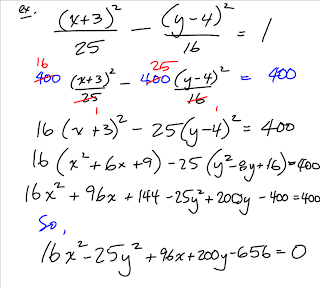 ex: (x+3)²/25 − (y−4)²/16 = 1
16 25
400 (x+3)²/25 − 400 (y−4)²/16 = 400
1 1
16(x+3)² − 25(y−4)² = 400
16(x²+6x+9) − 25(y²−8y+16) = 400
16x² + 96x + 144 − 25y² + 200y − 400 = 400
So,
16x² − 25y² + 96x + 200y − 656 = 0